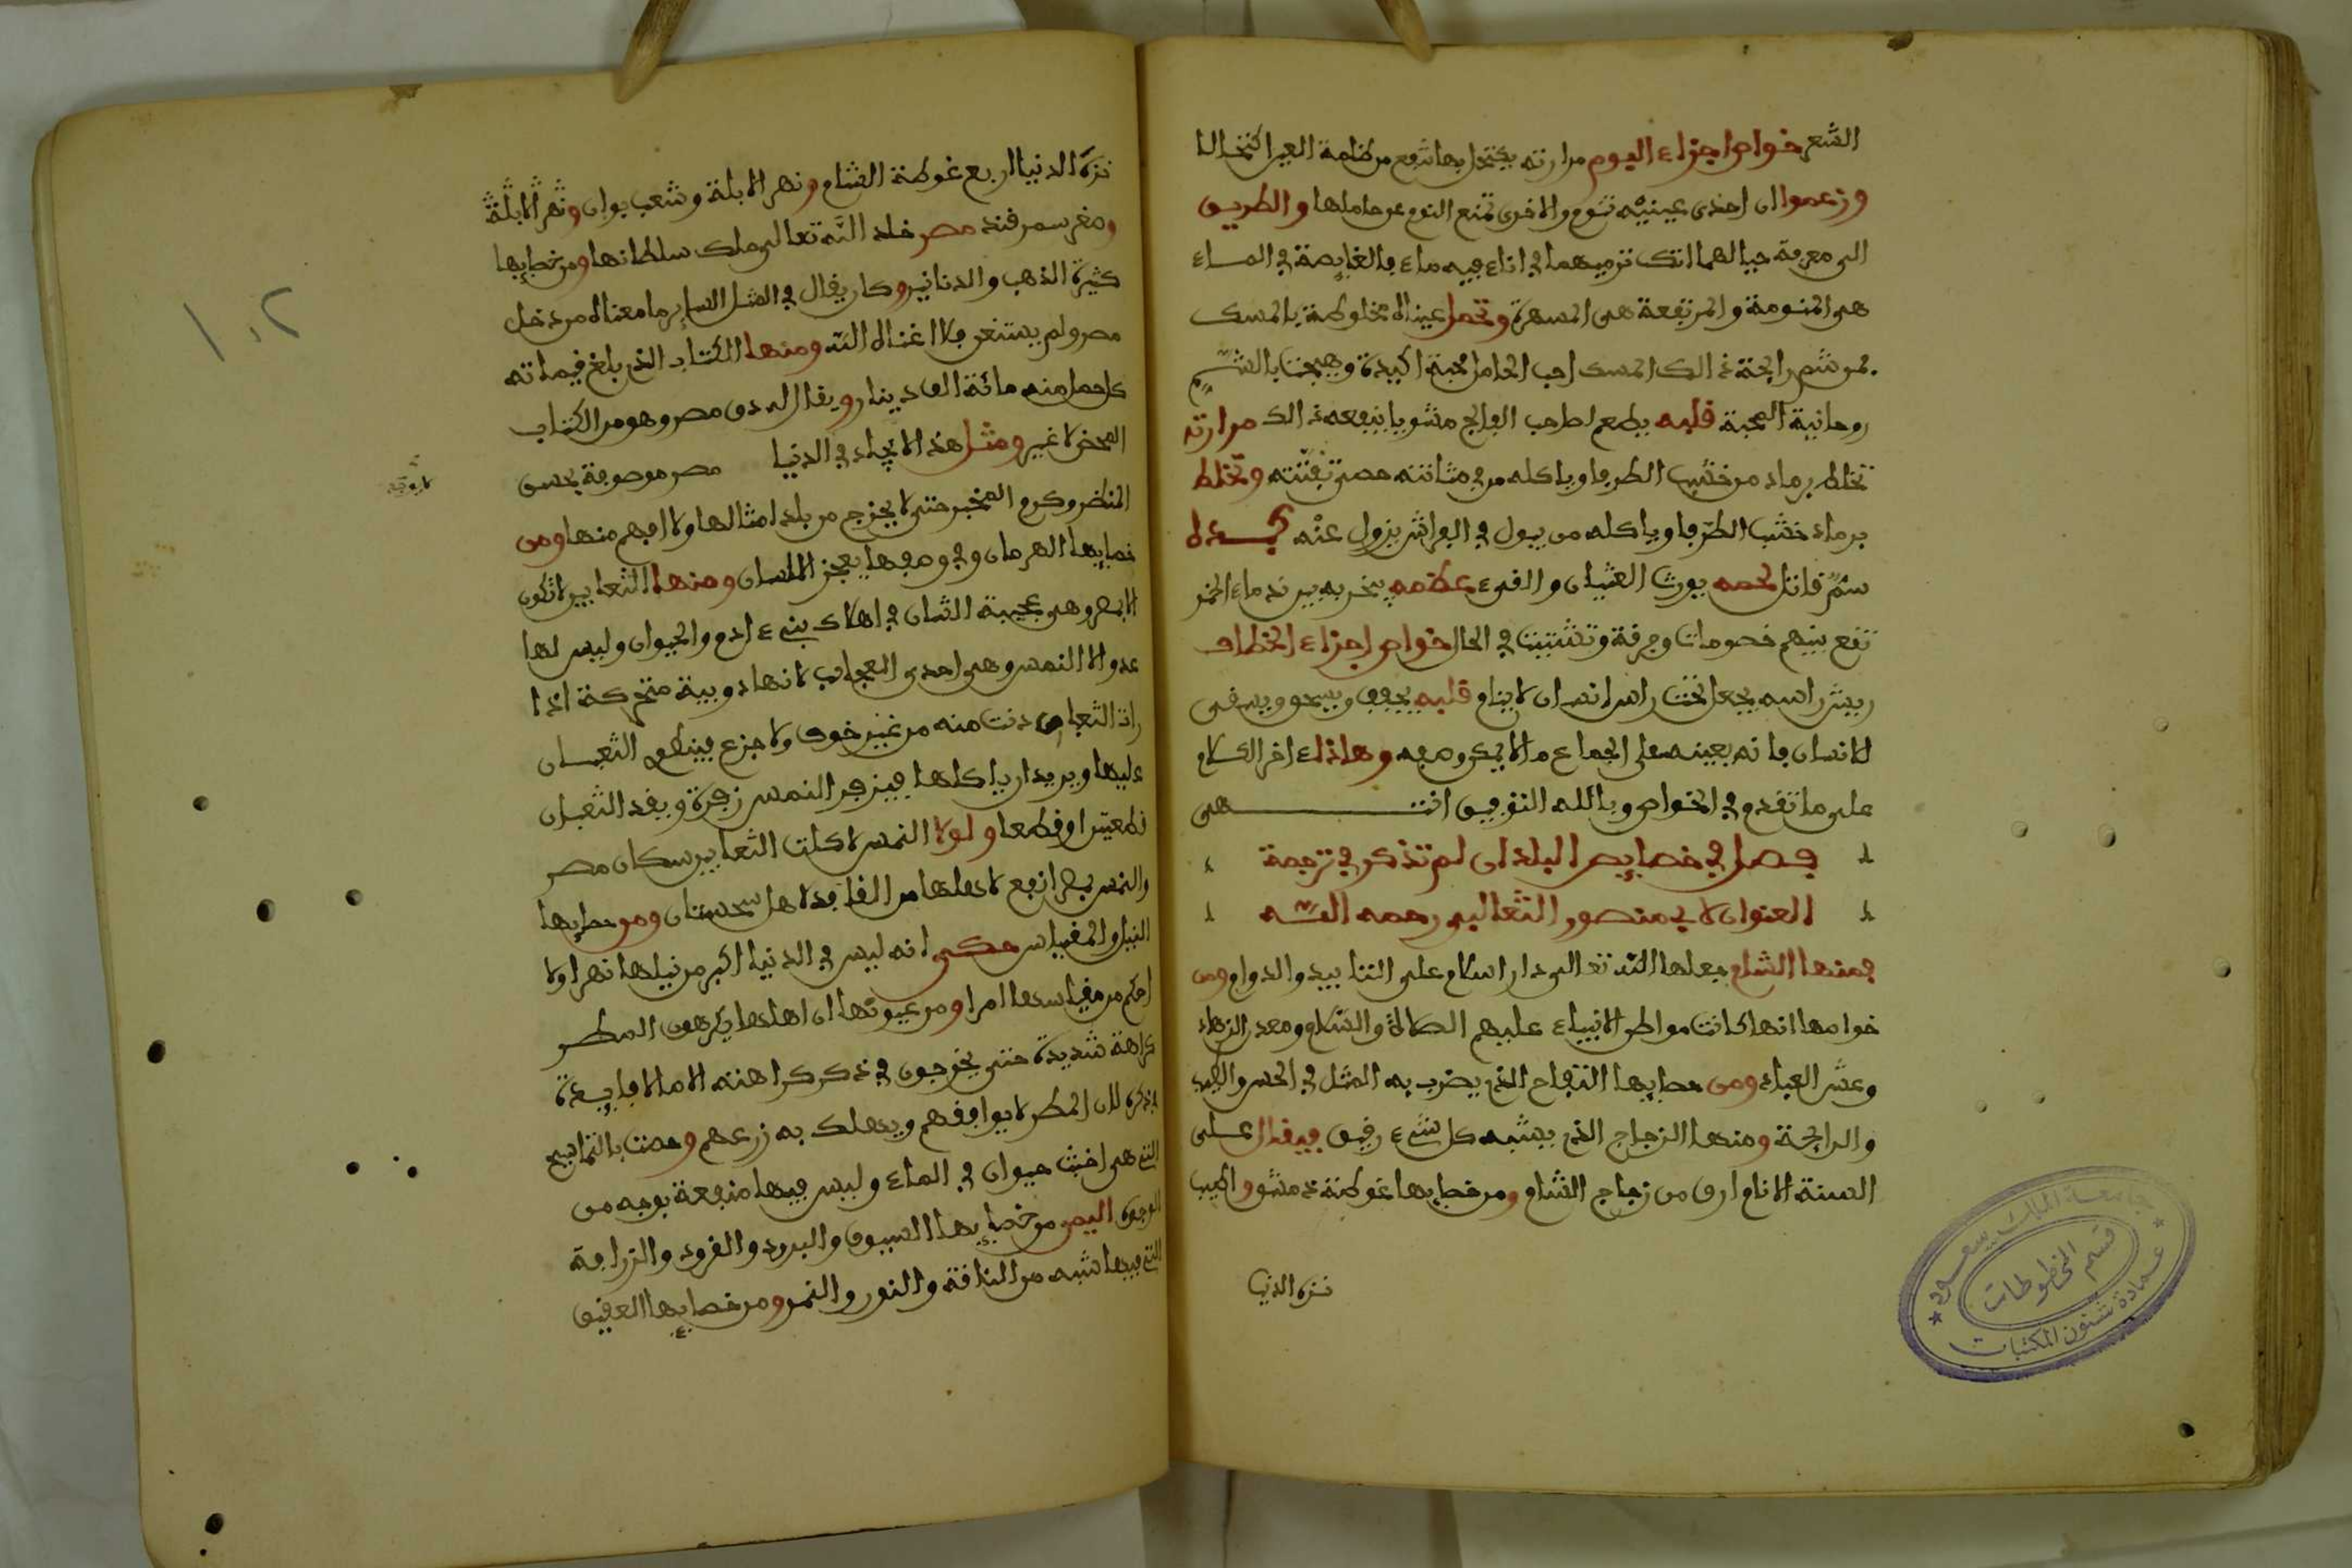 الشعر خواص اجزاء البوم مرارته يكتحل بها تنفع من ظلمة العين اكتحالا
وزعموا ان احدى عينيه تنوم والاخرى تمنع النوم عن حاملها والطريق
الى معرفة حيالهما انك ترميهما في اناء فيه ماء فالغايصة في الماء
هي المنومة والمرتفعة هي المسهرة وتحمل عيناه مخلوطة بالمسك
فمن شم رايحة ذالك المسك احب الحامل محبة اكيدة وهيجت بالشم
روحانية المحبة قلبه يطعم لصاحب الفالج مشويا ينفعه ذالك مرارته
تخلط برماد من خشب الطرفا وياكله من في مثانته حصى تفتته وتخلط
برماد خشب الطرفا وياكله من يبول في الفراش يزول عنه كبده
سم قاتل لحمه يورث الغثيان والقيء عظمه يبخر به بين ندماء الخمر
تقع بينهم خصومات وفرقة وتشتيت في الحال خواص اجزاء الخطاف
ريش راسه يجعل تحت راس انسان لا ينام قلبه يجفف ويسحق ويسقى
لانسان فانه يعينه على الجماع ما لا يمكن وصفه وهاذاء اخر الكلام
على ما تقدم في الخواص وبالله التوفيق انتهى
فصل في خصايص البلدان لم تذكر في ترجمة
العنوان لابي منصور الثعالبي رحمه الله
فمنها الشام جعلها الله تعالى دار اسلام على التابيد والدوام ومن
خواصها انها كانت مواطن الانبياء عليهم الصلاة والسلام ومعدن الزهاد
وعش العباد ومن خصايصها التفاح الذي يضرب به المثل في الحسن والطيب
والرايحة ومنها الزجاج الذي يشبه كل شيء رفيق فيقال على
السنة الانام ارق من زجاج الشام ومن خصايصها غوطة دمشق واطيب
نزه الدنيا
جامعة الملك سعود
قسم المخطوطات
عمادة شئون المكتبات
١٠٢
نزه الدنيا اربع غوطة الشام ونهر الابلة وشعب بوان ونهر الابلة
وصغر سمرقند مصر خلد الله تعالى ملك سلطانها ومن خصايصها
كثيرة الذهب والدنانير وكان يقال في المثل الساير ما معناه من دخل
مصر ولم يستغن فلا اغناه الله ومنها الكتاب الذي بلغ قيمة
كل حمل منه مائة الف دينار ويقال له دق مصر وهو من الكتاب
المحض لا غير ومثل هذا لا يجاد في الدنيا مصر موصوفة بحسن
المنظر وكرم المخبر حتى لا يخرج من بلد امثالها ولا افهم منها ومن
خصايصها الهرمان وفي وصفها يعجز اللسان ومنها الثعابين لا تكون
الا بمصر وهي عجيبة الشان في اهلاك بنيء ادم والحيوان وليس لها
عدو الا النمس وهي احدى العجايب لانها دويبة متحركة اذا
رات الثعبان دنت منه من غير خوف ولا جزع فينطوي الثعبان
عليها ويريد ان ياكلها فيزفر النمس زفرة ويقد الثعبان
قطعتين او قطعا ولولا النمس لاكلت الثعابين سكان مصر
والنمس بمصر انفع لاهلها من القنافد لاهل سجستان ومن خصايصها
النيل والمقياس حكي انه ليس في الدنيا اكبر من نيلها نهرا ولا
احكم من مقياسها امرا ومن عيوبها ان اهلها يكرهون المطر
كراهة شديدة حتى يخرجون في ذكر كراهته الى ما لا فايدة
بذكره لان المطر لا يوافقهم ويهلك به زرعهم وخصت بالتماسيح
التي هي اخبث حيوان في الماء وليس فيها منفعة بوجه من
الوجوه اليمن من خصايصها السيوف والبرود والقرود والزرافة
التي فيها شبه من الناقة والثور والنمر ومن خصايصها العقيق